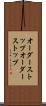 オーダースト
ップオーダー
ストップ